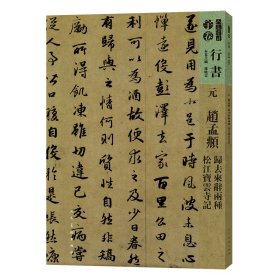 行書
元
趙孟頫
歸去來辭兩種
松江寶雲寺記
遂見用為小邑于時風波未靜心
憚遠役彭澤去家百里公田之
以為酒故便求之及少日
有歸與之情何則質性自然
所得飢凍雖切違己交病
人事皆口腹自役於是悵然